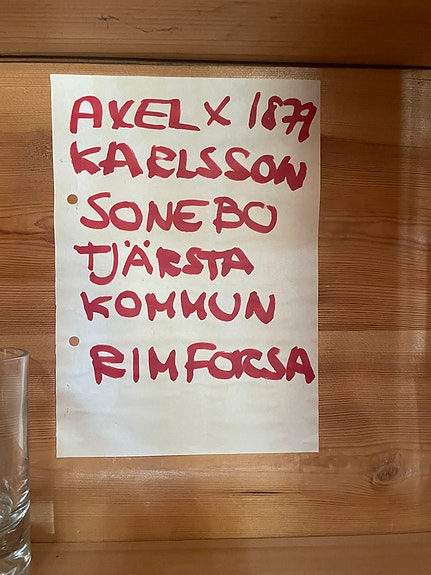 AXEL X 1879
KARLSSON
SONEBO
TJÄRSTA
KOMMUN
RIMFORSA